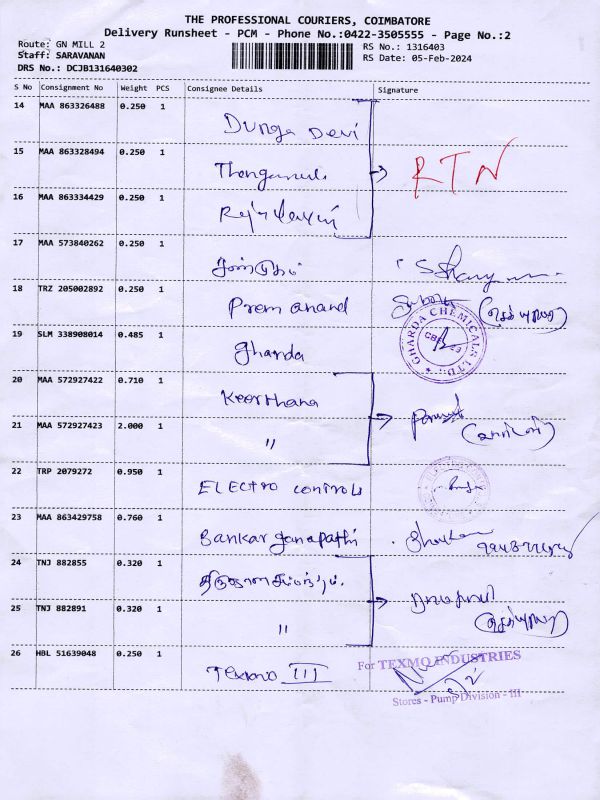 THE PROFESSIONAL COURIERS, COIMBATORE
Delivery Runsheet - PCM - Phone No.:0422-3505555 - Page No.:2
Route: GN MILL 2 RS No.: 1316403
Staff: SARAVANAN RS Date: 05-Feb-2024
DRS No.: DCJB131640302
S No Consignment No Weight PCS Consignee Details Signature
14 MAA 863326488 0.250 1
Durga Devi
15 MAA 863328494 0.250 1
RTN
16 MAA 863334429 0.250 1
17 MAA 573840262 0.250 1
18 TRZ 205002892 0.250 1
Prem anand
19 SLM 338908014 0.485 1
Gharda
GHARDA CHEMICALS LTD.
20 MAA 572927422 0.710 1
Keerthana
21 MAA 572927423 2.000 1
"
22 TRP 2079272 0.950 1
Electro controls
23 MAA 863429758 0.760 1
Sankar ganapathi
24 TNJ 882855 0.320 1
25 TNJ 882891 0.320 1
"
26 HBL 51639048 0.250 1
Texmo III
For TEXMO INDUSTRIES
Stores - Pump Division - III